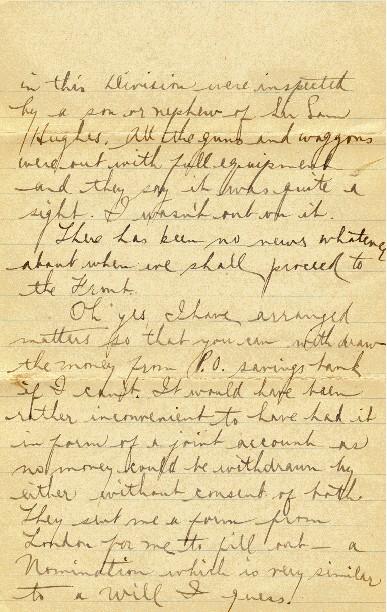 in this Division were inspected
by a son or nephew of Sir Sam
Hughes. All the guns and waggons
were out with full equipment
and they say it was quite a
sight. I wasn't out on it.
There has been no news whatever
about when we shall proceed to
the Front.
Oh yes I have arranged
matters so that you can withdraw
the money from P.O. savings bank
if I can't. It would have been
rather inconvenient to have had it
in form of a joint account as
no money could be withdrawn by
either without consent of both.
They sent me a form from
London for me to fill out – a
Nomination which is very similar
to a will I guess.